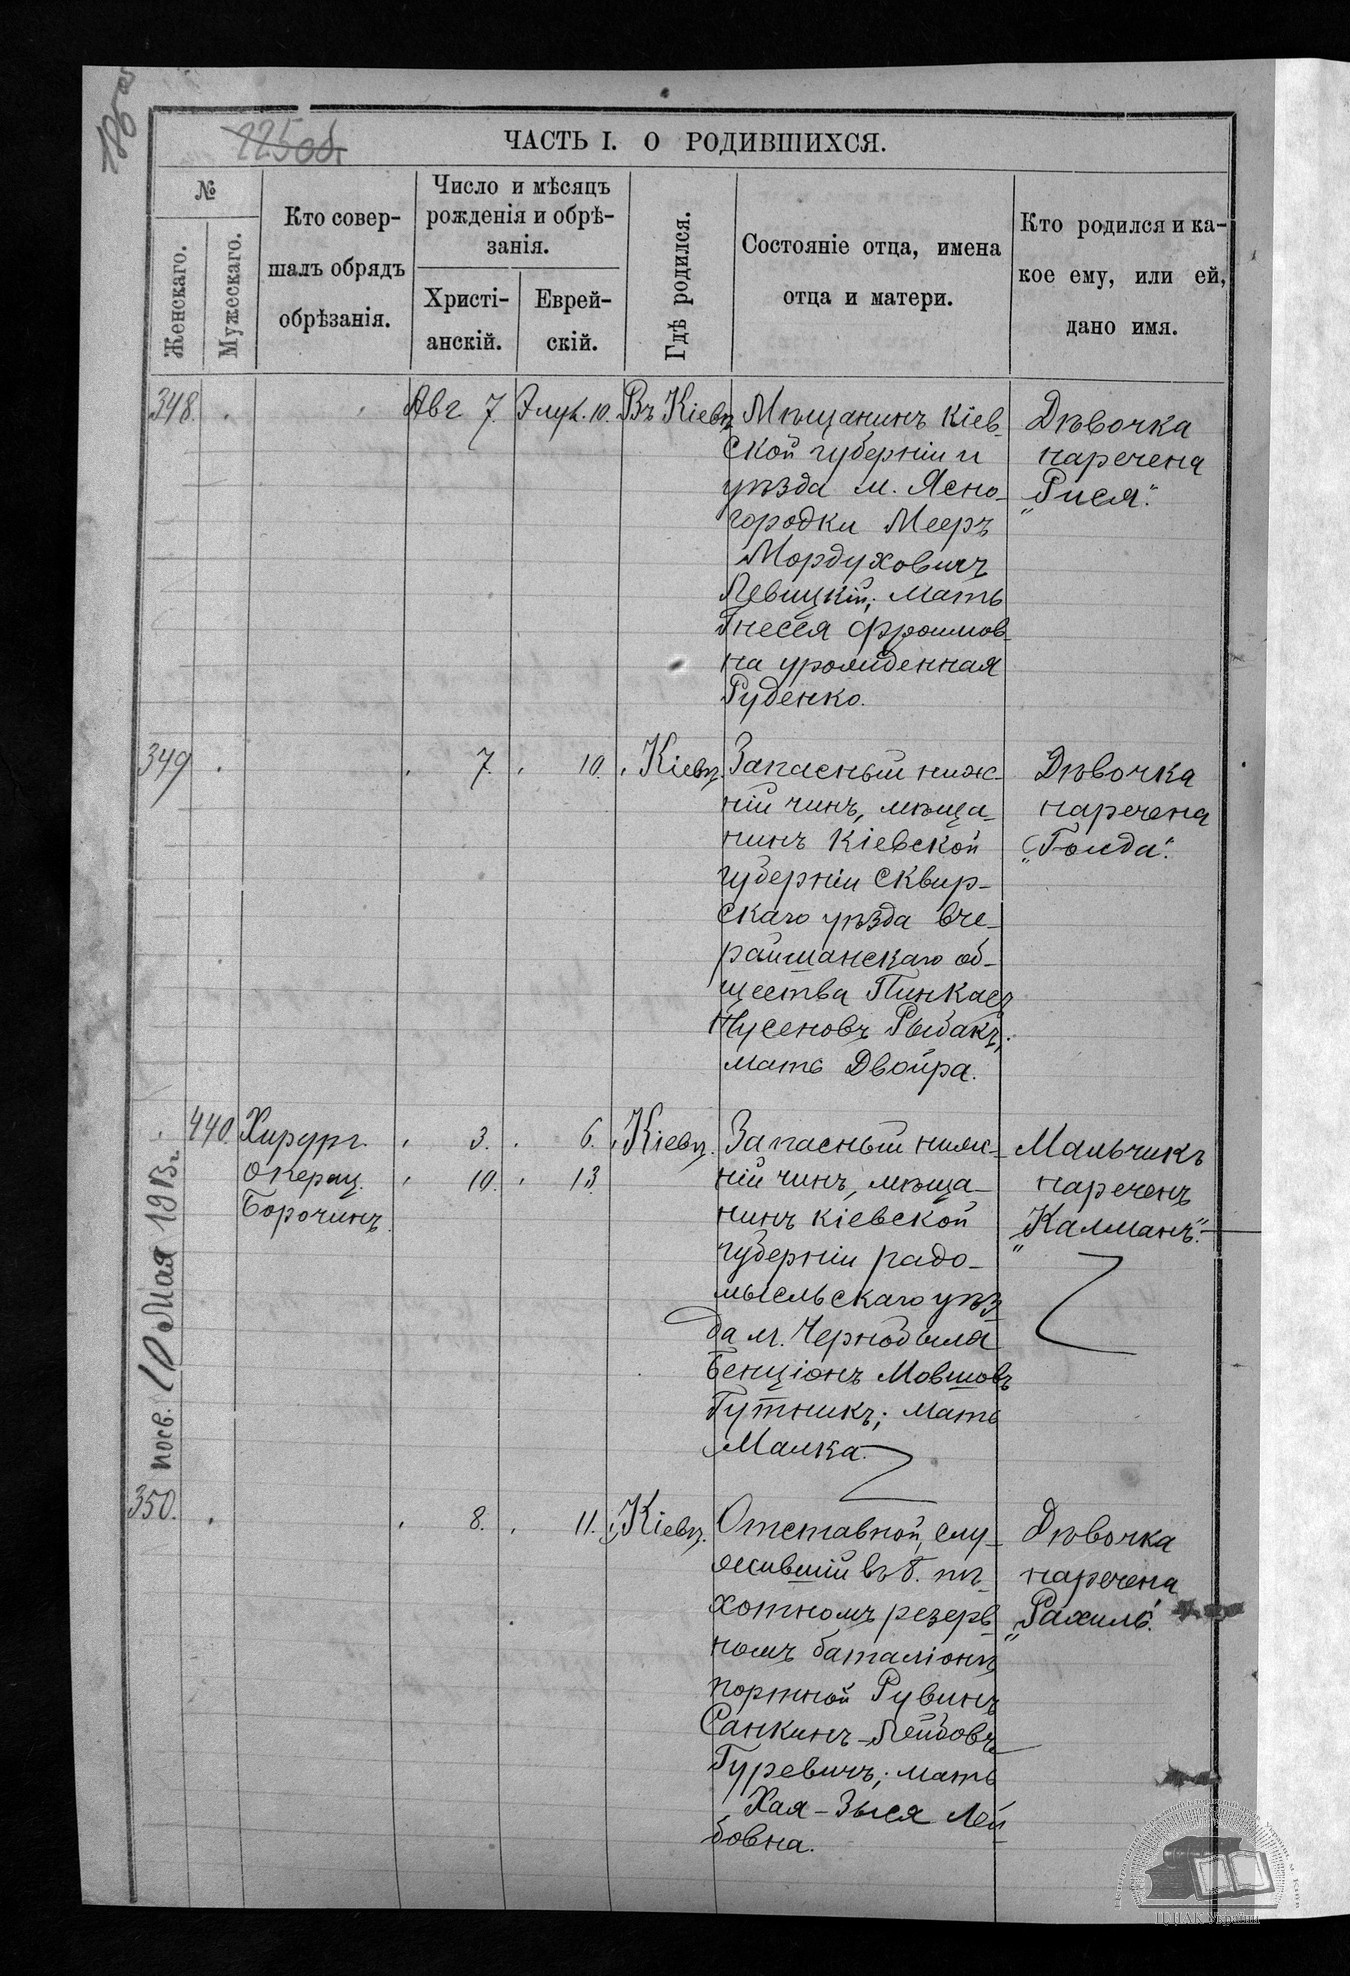 ЧАСТЬ I. О РОДИВШИХСЯ.
225 об.
№
Женскаго.
Мужескаго.
Кто совер-
шалъ обрядъ
обрѣзанія.
Число и мѣсяцъ
рожденія и обрѣ-
занія.
Христі-
анскій.
Еврей-
скій.
Гдѣ родился.
Состояніе отца, имена
отца и матери.
Кто родился и ка-
кое ему, или ей,
дано имя.
348.
Авг 7.
Элул. 10.
Въ Кіевѣ
Мѣщанинъ Кіев-
ской губерніи и
уѣзда м. Ясно-
городки Мееръ
Мордуховичъ
Левицкій; мать
Гнеся Фроимов-
на урожденная
Руденко.
Дѣвочка
наречена
„Рися“.
349
7.
10.
Кіевѣ.
Запасный ниж-
ній чинъ, мѣща-
нинъ Кіевской
губерніи Сквир-
скаго уѣзда Вче-
райшанскаго об-
щества Пинкасъ
Нусеновъ Рыбакъ;
мать Двойра.
Дѣвочка
наречена
„Голда“.
440.
Хирург.
Оператц.
Борочинъ.
3.
10.
6.
13.
Кіевѣ.
Запасный ниж-
ній чинъ, мѣща-
нинъ Кіевской
губерніи радо-
мысльскаго уѣз-
да м. Чернобыля
Бенціонъ Мовшовъ
Гутникъ; мать
Малка.
Мальчикъ
нареченъ
„Калманъ“.
10 Мая 1913 г.
350.
8.
11.
Кіевѣ.
Отставной, слу-
жившій въ 8. пѣ-
хотномъ резерв-
номъ баталіонѣ
портной Рувинъ
Санкинъ-Лейбовъ
Гуревичъ; мать
Хая-Зыся Лей-
бовна.
Дѣвочка
наречена
„Рахиль“.
ЦДІАК України